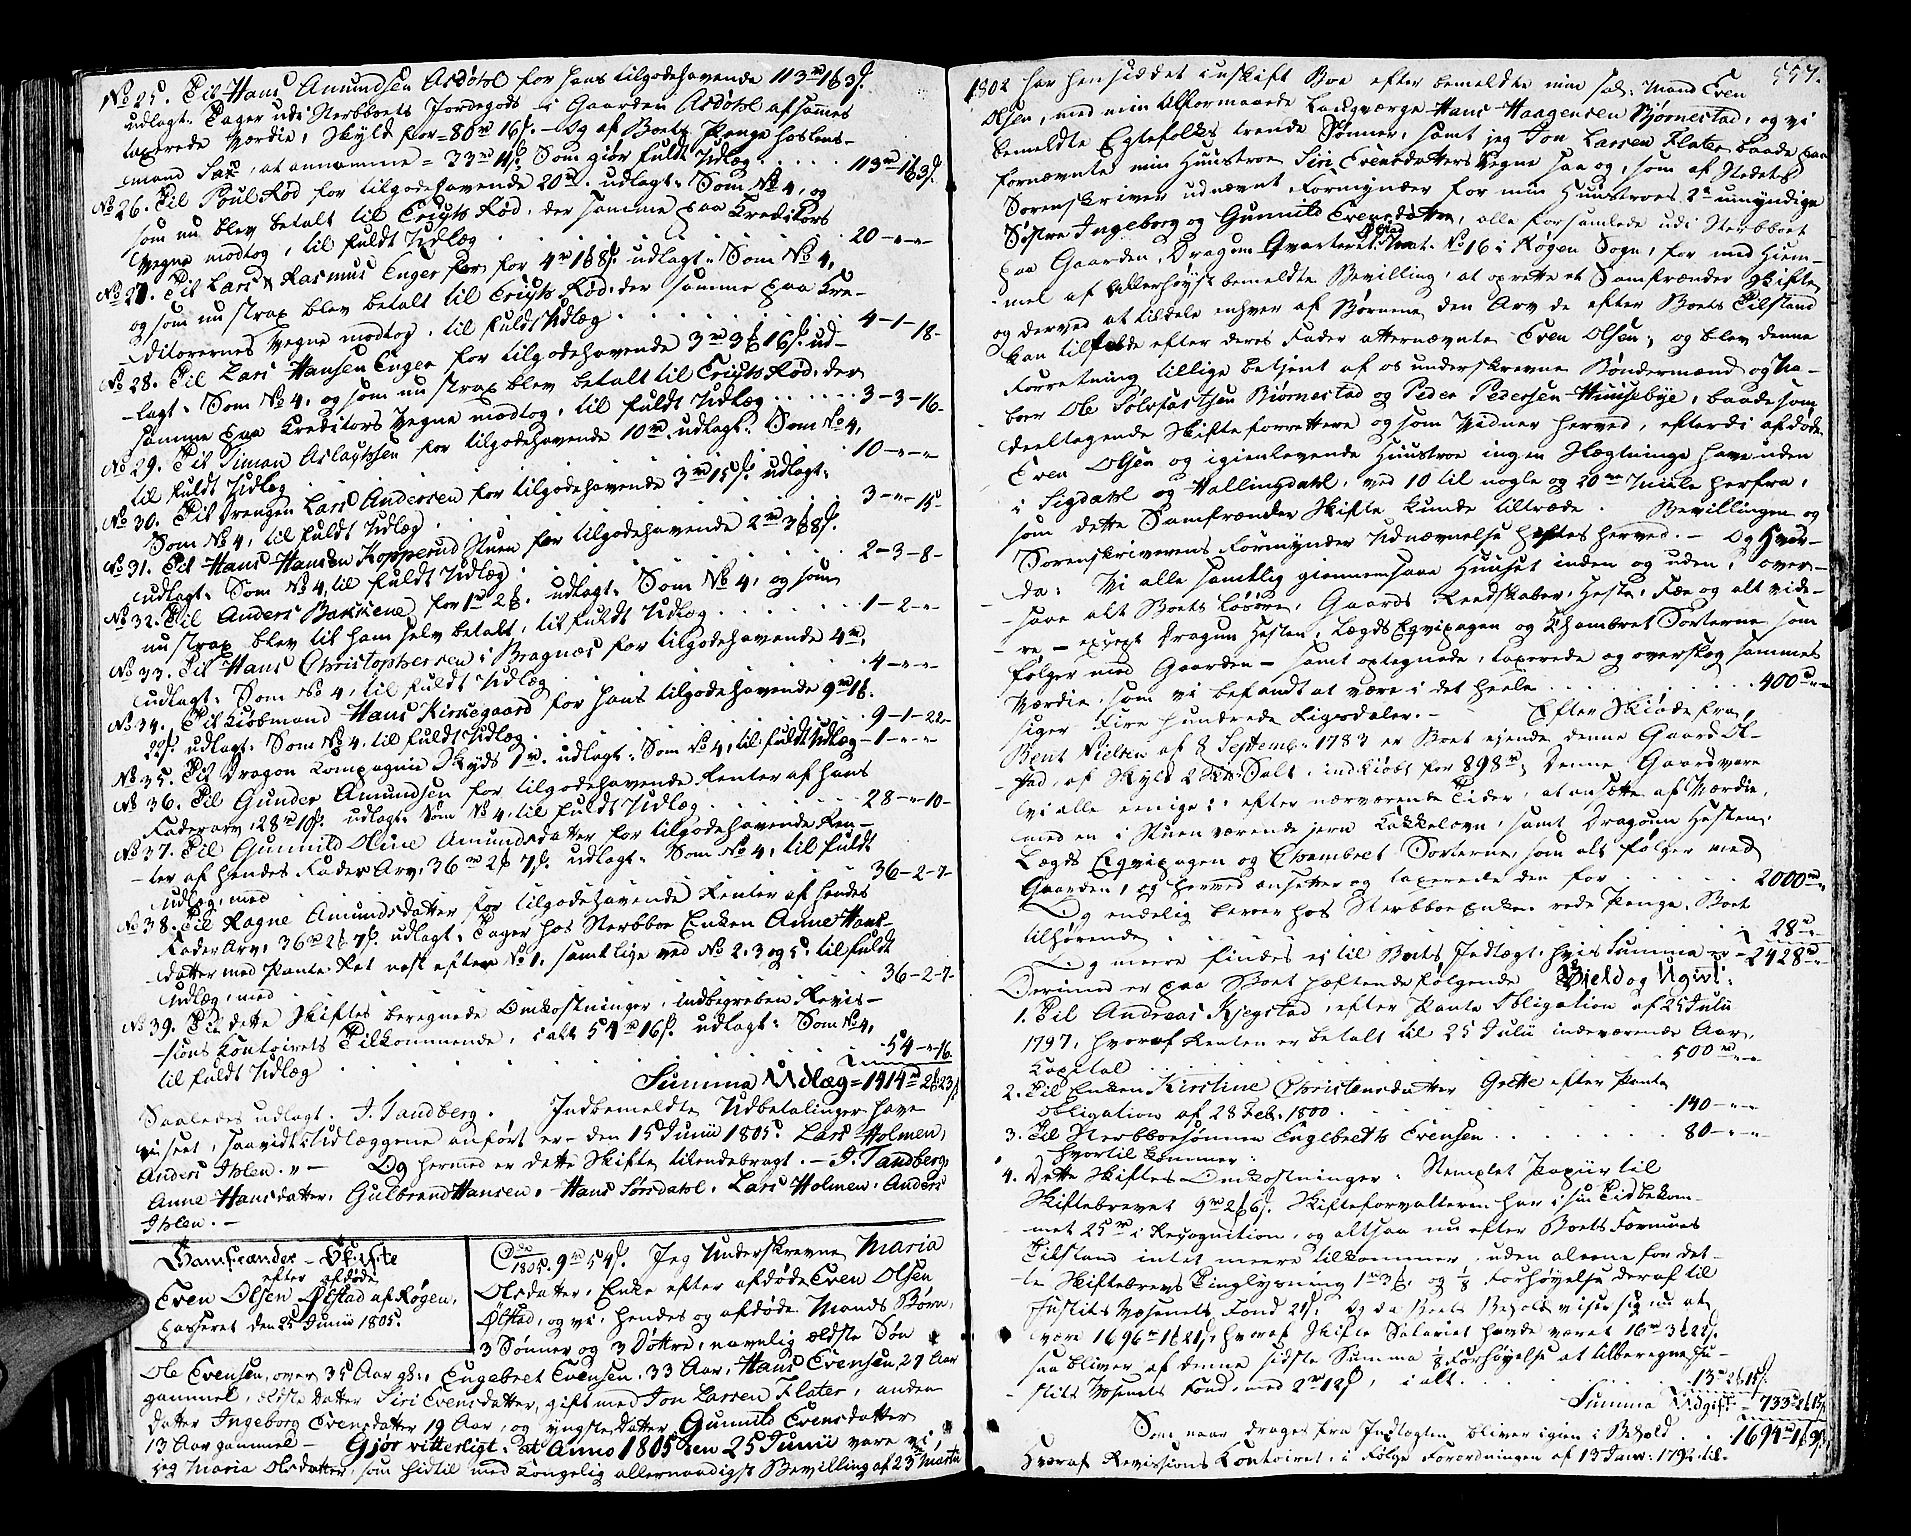 No 25. Til Hans Amundsen Asdøhl for hans tilgodehavende 113rd 1 ß 3 s.
udlagt. Tager udi Sterbboets Jordegods i Gaarden Asdøhl af sammes
taxerede Værdie, Skyld for = 80rd 16 s. - Og af Boets Penge hos Lens-
mand Sax, at annamme = 33rd Som giør fuldt Udlæg 113rd 1 ß 3 s.
No 26. Til Poul Rød for tilgodehavende 20rd. udlagt: Som No 4, og
som nu blev betalt til Rød, der samme paa Kreditors
Vegne modtog, til fuldt Udlæg 20 - " - "
No 27. Til Lars & Rasmus Enger for 4rd 1 ß 18 s. udlagt: Som No 4,
og som nu strax blev betalt til Rød: der samme paa Kre-
ditorernes Vegne modtog, til fuldt Udlæg 4 - 1 - 18 -
No 28. Til Lars Hansen Enger for tilgodehavende 3rd 3 ß 16 s. ud-
lagt: Som No 4, og som nu strax blev betalt til Rød, der
samme paa Kreditors Vegne modtog, til fuldt Udlæg 3 - 3 - 16 -
No 29. Til Siman Aslachsen for tilgodehavende 10rd. udlagt: Som No 4,
til fuldt Udlæg 10 - " - "
No 30. Til Drengen Lars Andersen for tilgodehavende 3rd 15 s. udlagt:
Som No 4, til fuldt Udlæg 3 - " - 15 -
No 31. Til Hans Hansen Kopperud Stuen for tilgodehavende 2rd 3 ß 8 s.
udlagt: Som No 4, til fuldt Udlæg 2 - 3 - 8 -
No 32. Til Anders Bakkene for 1rd 2 ß. udlagt: Som No 4, og som
nu strax blev til ham selv betalt, til fuldt Udlæg 1 - 2 - "
No 33. Til Hans Christophersen i Bragnæs for tilgodehavende 4rd,
udlagt: Som No 4, til fuldt Udlæg 4 - " - "
No 34. Til Kiøbmand Hans Kirkegaard for hans tilgodehavende 9rd 1 ß.
22 s. udlagt: Som No 4, til fuldt Udlæg 9 - 1 - 22 -
No 35. Til Dragon Compagnie Skyds 1rd. udlagt: Som No 4, til fuldt Udlæg - 1 - " - "
No 36. Til Gunder Amundsen for tilgodehavende Renter af hans
Faderarv, 28rd 10 s. udlagt: Som No 4, til fuldt Udlæg 28 - " - 10 -
No 37. Til Gunnild Oline Amundsdatter for tilgodehavende Ren-
ter af hendes Fader Arv, 36rd 2 ß 7 s. udlagt: Som No 4, til fuldt
Udlæg, med 36 - 2 - 7 -
No 38. Til Ragne Amundsdatter for tilgodehavende Renter af hendes
Fader Arv, 36rd 2 ß 7 s. udlagt: Tager hos Sterbboe Enken Anne Hans-
datter med Pante Ret næst efter No 1. samtlige ved No 2. 3 og 5. til fuldt
Udlæg, med 36 - 2 - 7 -
No 39. Til dette Skiftes beregnede Omkostninger, indbegreben Revis-
sions Kontoirets Tilkommende, i alt 54rd 16 s. udlagt: Som No 4,
til fuldt Udlæg 54 - " - 16
Summa Udlæg = 1414rd 2 ß 23 s.
Saaledes udlagt. J. Tandberg. Indbemeldte Udbetalinger have
vi seet, saavidt i Udlæggene anført er - den 15 Junii 1805. Lars Holmen,
Anders Ihlen. " - Og hermed er dette Skifte tilendebragt. - J. Tandberg
Anne Hansdatter. Gulbrand Hansen. Hans Sørsdahl. Lars Holmen. Anders
Ihlen. -
Samfrænder - Skifte
efter afdøde
Even Olsen Ølstad af Røgen,
passeret den 25 Junii 1805.
1805. 9rd 54 s. Jeg Underskrevne Maria
Olsdatter, Enke efter afdøde Even Olsen
Ølstad, og vi, hendes og afdøde Mands Børn,
3 Sønner og 3 Døttre, navnlig ældste Søn
Ole Evensen, over 35 Aar gl:, Engebret Evensen, 33 Aar, Hans Evensen, 27 Aar
gammel, ældste Datter Siri Evensdatter, gift med Jon Larsen Flater, anden
Datter Ingeborg Evensdatter 19 Aar, og yngste Datter Gunnild Evensdatter
13 Aar gammel - Gjør vitterligt: at Anno 1805 den 25 Junii vare vi,
jeg Maria Olsdatter, som hidtil med Kongelig allernaadigst Bevilling af 23 Martii
557.
1802 har hensiddet i uskift Boe efter bemeldte min sal: Mand Even
Olsen, med min Laugværge Hans Haagensen Bjørnestad, og vi
bemeldte Egtefolks trende Sønner, samt jeg Jon Larsen Flater baade paa
fornævnte min Huustroe Siri Evensdatters Vegne saa og, som af Stedets
Sorenskriver udnævnt Formynder for min Huustroes 2de umyndige
Søstre Ingeborg og Gunnild Evensdøttre, alle forsamlede udi Sterbboet
paa Gaarden, Dragon Qvarteret Ølstad, Mat. No 16 i Røgen Sogn, for med Hiem-
mel af Allerhøyst bemeldte Bevilling, at oprette et Samfrænder Skifte,
og derved at tildele enhver af Børnene den Arv de efter Boets Tilstand
kan tilfalde efter deres Fader atternævnte Even Olsen; og blev denne
Forretning tillige betjent af os underskrevne Bøndermænd og Na-
boer Ole Solfastsen Biørnestad og Peder Pedersen Huusebye, baade som
deeltagende Skifteforrettere og som Vidner herved, efterdi afdøde
Even Olsen og igienlevende Huustroe ingen Slægtninge have uden
i Sigdahl og Hallingdahl, ved 10 til nogle og 20 Miile herfra,
som dette Samfrænder Skifte kunde tiltræde. Bevillingen og
Sorenskriverens Formynder Udnævnelse hæftes herved. - Og Hvor-
da: Vi alle samtlig giennemsaae Huuset inden og uden, over-
saae alt Boets Løsøre, Gaards Reedskaber, Heste, Fæe og alt vide-
re - except Dragun Hesten, Lægds Eqvipagen og Chambret Sorterne som
følger med Gaarden - samt optegnede, taxerede og overslog sammes
Værdie, som vi befandt at være i det heele 400rd " "
siger Fire Hundrede Rigsdaler. - Efter Skiøde fra
Bent Nielsen af 8 Septemb: 1783 er Boet ejende denne Gaard Øl-
stad, af Skyld 2 Salt, indkiøbt for 898rd; Denne Gaard vare
vi alle eenige i: efter nærværende Tider, at ansætte af Værdie,
med en i Stuen værende jern Kakkelovn, samt Dragoun Hesten,
Lægds Eqvipagen og Chambret Sorterne, som alt følger med
Gaarden, og herved ansetter og taxerede den for 2000rd "
Og endelig beroer hos Sterbboe Enken rede Penge, Boet
tilhørende 28rd "
Og meere findes ej til Boets Indtægt, hvis Summa er - 2428rd "
Derimod er paa Boet hæftende følgende Gield og Udgivt:
1. Til Andreas Kjegstad, efter Pante Obligation af 25 Julii
1797, hvoraf Renten er betalt til 25 Julii indeværende Aar,
Kapital 500rd " "
2. Til Enken Kirstine Christensdatter Grette efter Pante
Obligation af 28 Feb. 1800. 140 - " - "
3. Til Sterbboesønnen Engebreth Evensen 80 - " - "
Hvortil kommer:
4. Dette Skiftes Omkostninger: Stemplet Papiir til
Skiftebrevet 9rd 2 ß 6 s. Skifteforvalteren har i sin Tid bekom-
met 25rd i Recognition, og altsaa nu efter Boets Formues
Tilstand intet meere tilkommer, uden aleene for det-
te Skiftebrevs Tinglysning 1rd 3 ß, og 1/8 Forhøyelse deraf til
Justits Væsenets Fond 21 s. Og da Boets Behold viser sig nu at
være 1696rd 1 ß 21 s; hvoraf Skifte Salariet havde været 16rd 3 ß 22 s.
saa bliver af denne sidste Summa 1/8 Forhøyelse at tilberegne Ju-
stits Væsenets Fond, med 2rd 12 s, i alt 13rd 2 ß 15 s.
Summa Udgift - 733rd 2 ß 15 s.
Som naar drages fra Indtægten bliver igien i Behold 1694rd 1 ß 9 s.
Hvoraf Revissions Kontoiret, i Følge Forordningen af 13 Janv: 1792. til-